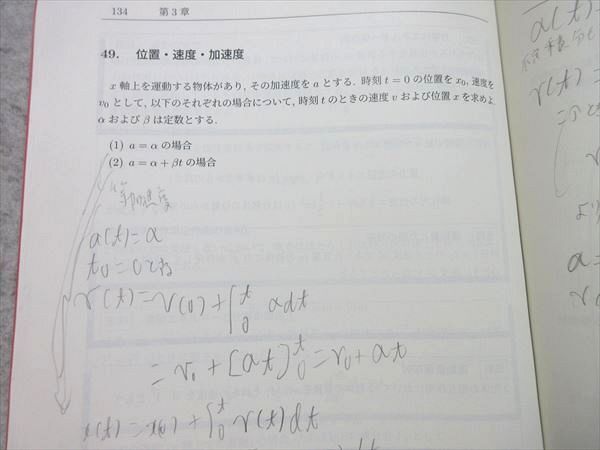 134 第3章
49. 位置・速度・加速度
x 軸上を運動する物体があり, その加速度を a とする. 時刻 t = 0 の位置を x₀, 速度を
v₀ として, 以下のそれぞれの場合について, 時刻 t のときの速度 v および位置 x を求めよ
α および β は定数とする.
(1) a = α の場合
(2) a = α + βt の場合
等加速度
a(t) = α
t₀ = 0とする
v(t) = v(0) + ∫₀ᵗ α dt
= v₀ + [αt]₀ᵗ = v₀ + αt
x(t) = x(0) + ∫₀ᵗ v(t) dt
a(t)
v(t) =
より
a =